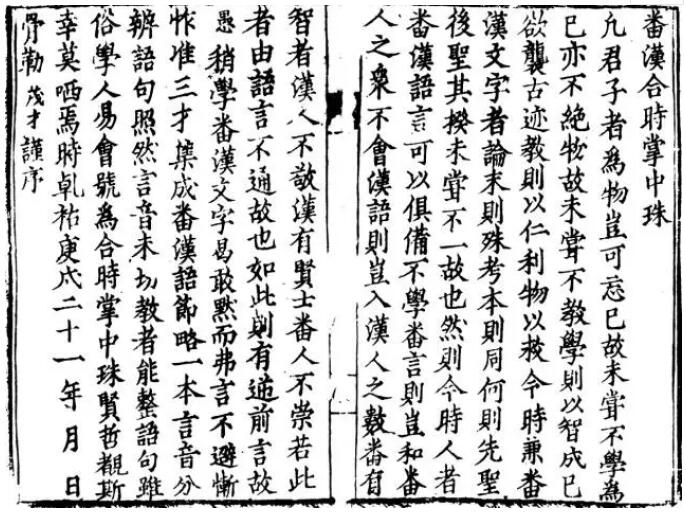 番漢合時掌中珠
凢君子者為物豈可忘已故未甞不學為
已亦不絶物故未甞不教學則以智成已
欲襲古迹教則以仁利物以救今時兼番
漢文字者論末則殊考本則同何則先聖
後聖其揆未甞不一故也然則今時人者
番漢語言可以俱備不學番言則豈和番
人之衆不會漢語則豈入漢人之數番有
智者漢人不敬漢有賢士番人不崇若此
者由語言不通故也如此則有逆前言故
愚稍學番漢文字曷敢黙而弗言不避慚
怍准三才集成番漢語節略一本言音分
辨語句照然言音未切教者能整語句雖
俗學人易會號為合時掌中珠賢哲覩斯
幸莫哂焉時乹祐庚戌二十一年月日
骨勒茂才謹序